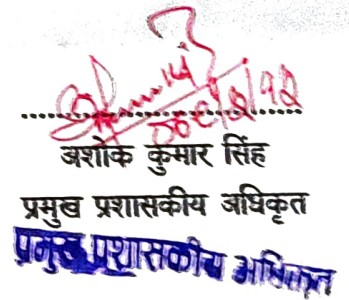 अशोक कुमार सिंह
प्रमुख प्रशासकीय अधिकृत
प्रमुख प्रशासकीय अधिकृत